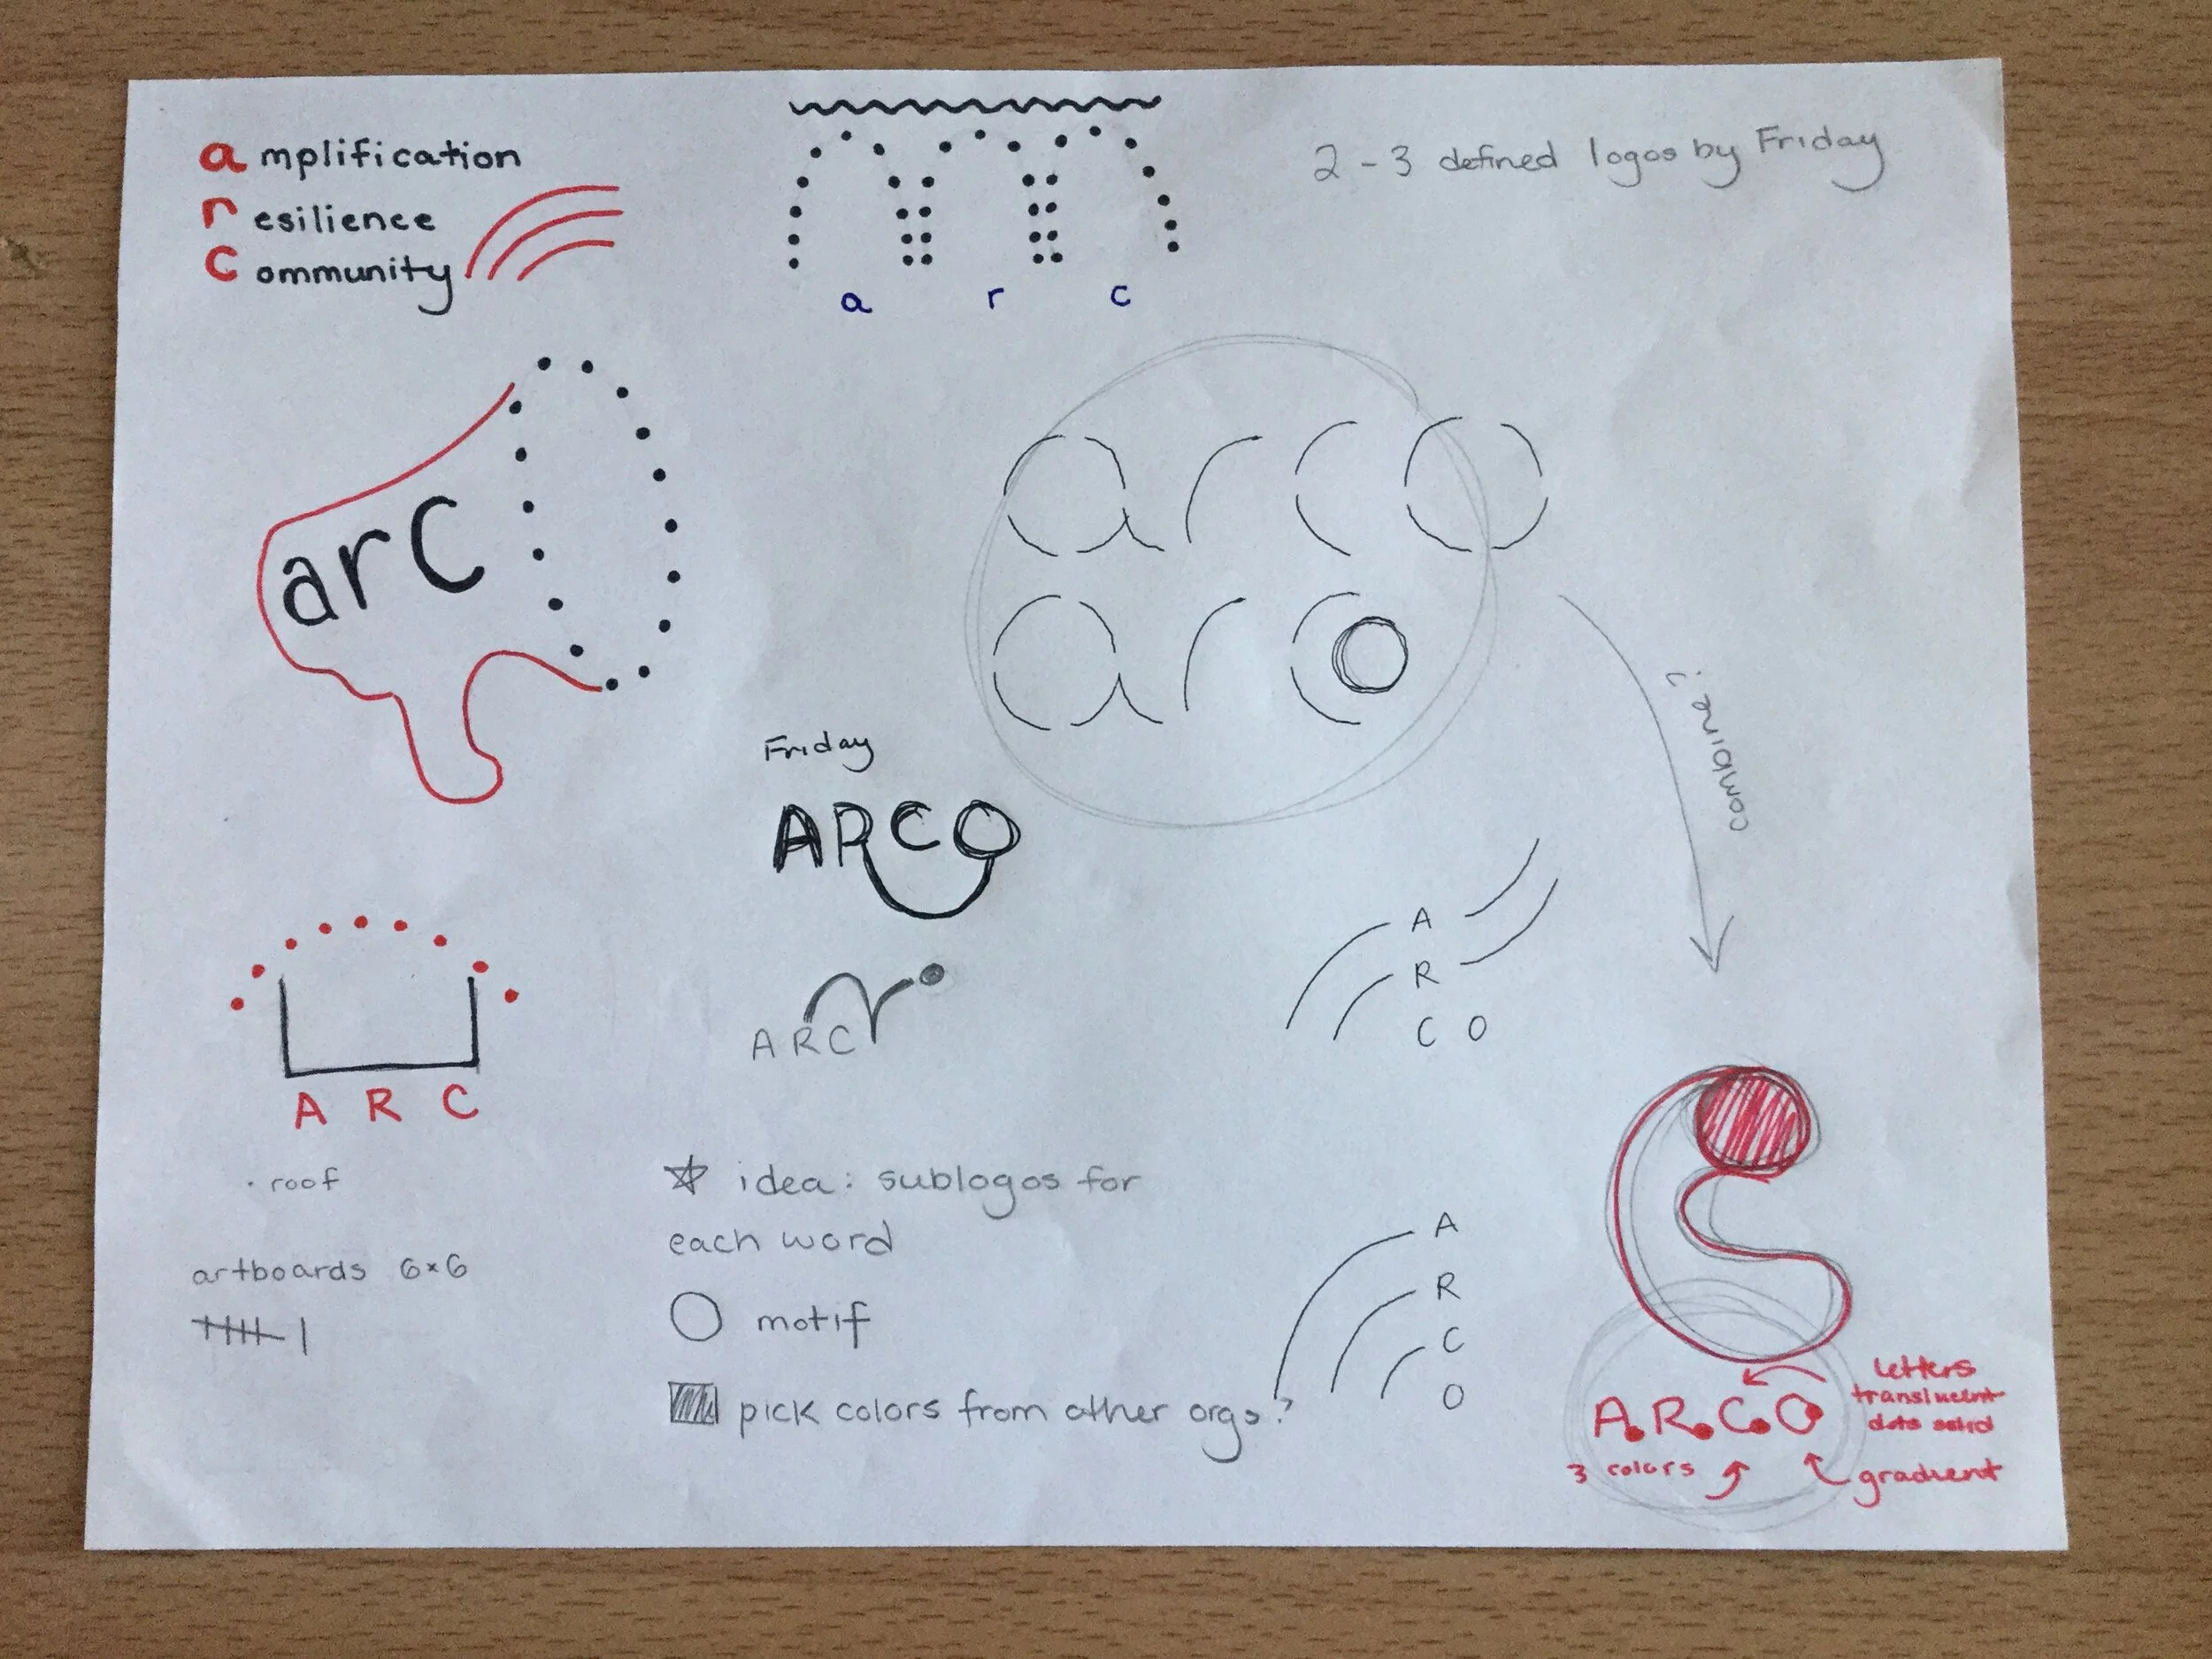 amplification
resilience
community
a r c
2 - 3 defined logos by Friday
arC
arco
arco
combine?
Friday
ARCO
ARC
A
R
C O
A R C
· roof
artboards 6×6
idea: sublogos for
each word
motif
pick colors from other orgs?
A
R
C
O
letters
translucent
dots solid
A.R.C.O
3 colors
gradient